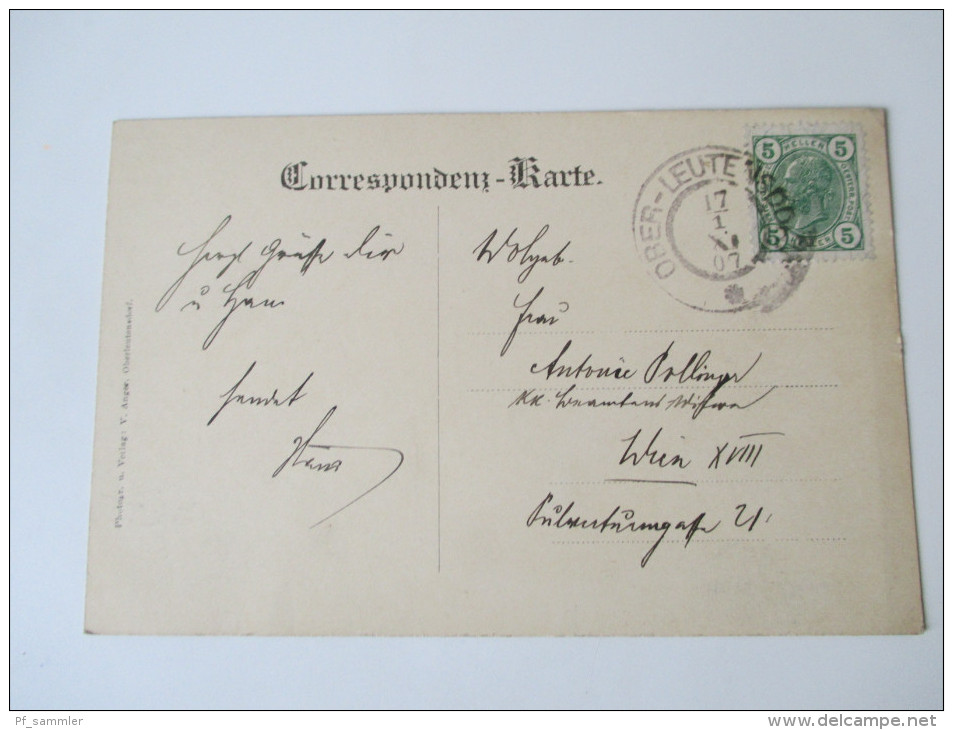 Correspondenz-Karte.
OBER-LEUTENSDO
17
1
XI
07
5 HELLER 5
5 HELLER 5
Herzl Grüße dir
u Hans
sendet
Hans
Wolgeb.
Frau
Antonie Pollinger
kk. Beamtens Witwe
Wien XVIII
Pulverturmgasse 21.
Photogr. u. Verlag: V. Anger, Oberleutensdorf.
Pf_sammler
www.delcampe.net